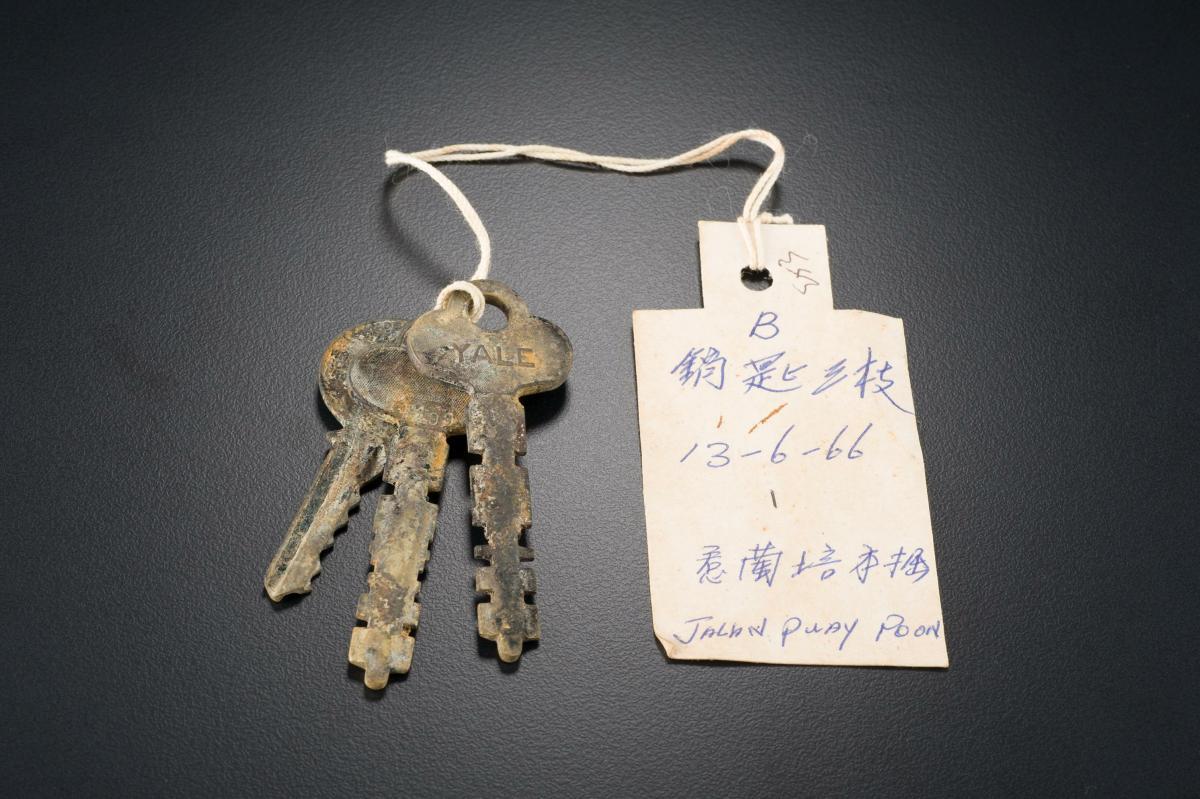 YALE
B
鎖匙三枝
13-6-66
惹蘭培本掘
JALAN PUAY POON